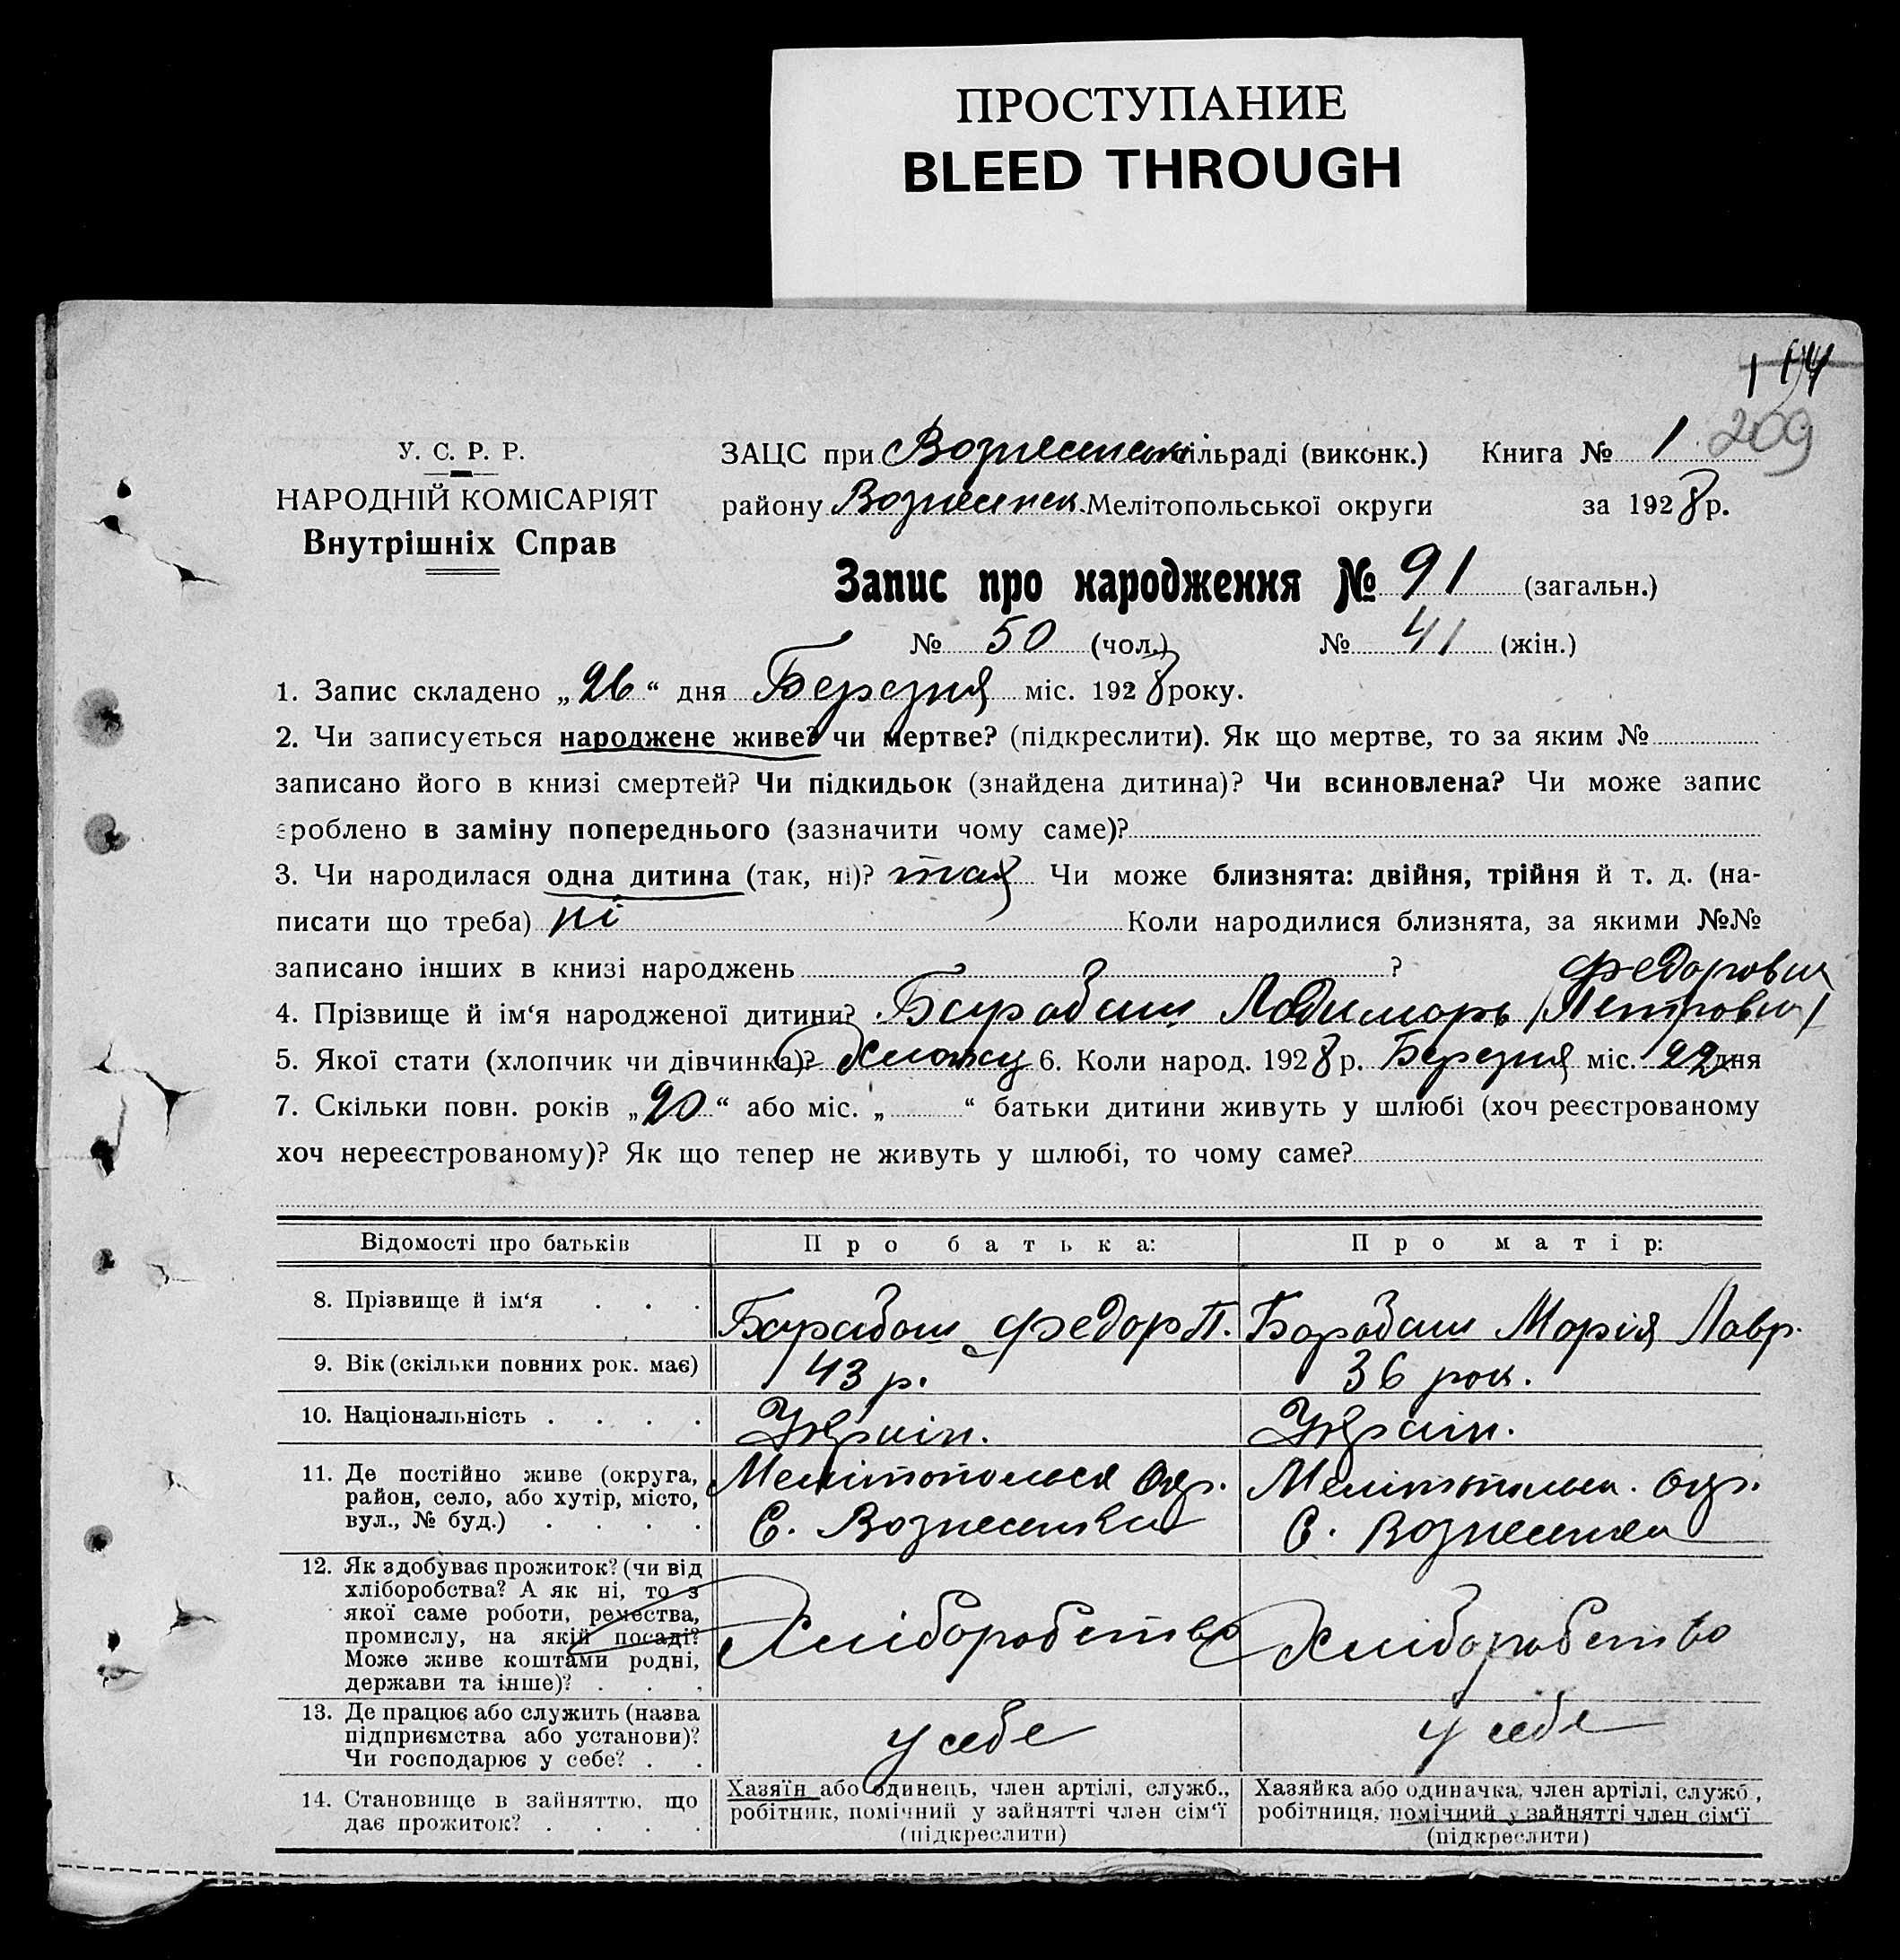 ПРОСТУПАНИЕ
BLEED THROUGH
209
У. С. Р. Р.
НАРОДНІЙ КОМІСАРІЯТ
Внутрішніх Справ
ЗАЦС при Вознесенські сільраді (виконк.) Книга № 1
району Вознесенск. Мелітопольської округи за 1928 р.
Запис про народження № 91 (загальн.)
№ 50 (чол.) № 41 (жін.)
1. Запис складено „26“ дня Березня міс. 1928 року.
2. Чи записується народжене живе? чи мертве? (підкреслити). Як що мертве, то за яким №
записано його в книзі смертей? Чи підкидьок (знайдена дитина)? Чи всиновлена? Чи може запис
зроблено в заміну попереднього (зазначити чому саме)?
3. Чи народилася одна дитина (так, ні)? так Чи може близнята: двійня, трійня й т. д. (на-
писати що треба) ні Коли народилися близнята, за якими №№
записано інших в книзі народжень ?
Федорович
4. Прізвище й ім‘я народженої дитини? Барабаш (Петрович)
5. Якої стати (хлопчик чи дівчинка)? Хлопец 6. Коли народ. 1928 р. Березня міс. 22 дня
7. Скільки повн. років „20“ або міс. „ “ батьки дитини живуть у шлюбі (хоч реєстрованому
хоч нереєстрованому)? Як що тепер не живуть у шлюбі, то чому саме?
Відомості про батьків Про батька: Про матір:
8. Прізвище й ім‘я . . . Барабаш Федор П. Барабаш Марія Лавр.
9. Вік (скільки повних рок. має) 43 р. 36 рок.
10. Національність . . . . Україн. Україн.
11. Де постійно живе (округа,
район, село, або хутір, місто,
вул., № буд.) . . . .
Мелітопольск Окр.
С. Вознесенка
Мелітопольск. Окр.
С. Вознесенка
12. Як здобуває прожиток? (чи від
хліборобства? А як ні, то з
якої саме роботи, ремества,
промислу, на якій посаді?
Може живе коштами родні,
держави та інше)? . . .
Хліборобство
Хліборобство
13. Де працює або служить (назва
підприємства або установи)?
Чи господарює у себе? . .
у себе
у себе
14. Становище в зайняттю, що
дає прожиток? . . . .
Хазяїн або одинець, член артілі, служб.,
робітник, помічний у зайнятті член сім‘ї
(підкреслити)
Хазяйка або одиначка, член артілі, служб.,
робітниця, помічний у зайнятті член сім‘ї
(підкреслити)